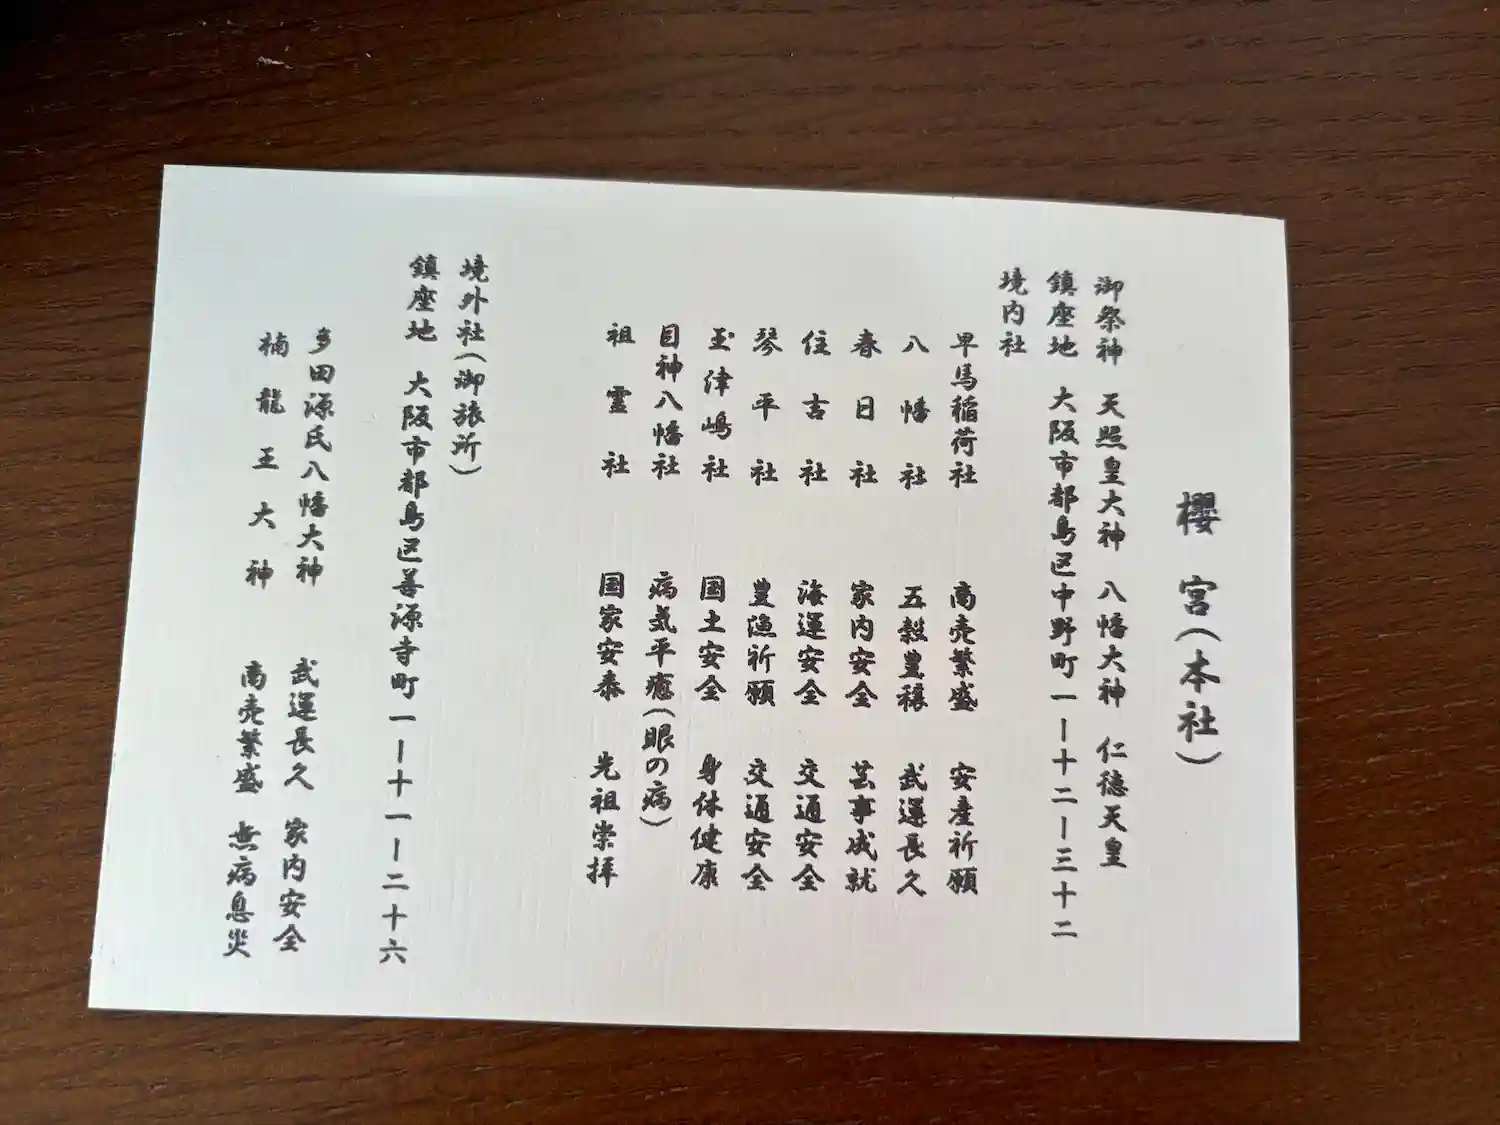 櫻宮(本社)
御祭神 天照皇大神 八幡大神 仁徳天皇
鎮座地 大阪市都島区中野町一ー十二ー三十二
境内社
早馬稲荷社 商売繁盛 安産祈願
八幡社 五穀豊穣 武運長久
春日社 家内安全 芸事成就
住吉社 海運安全 交通安全
琴平社 豊漁祈願 交通安全
玉津嶋社 国土安全 身体健康
目神八幡社 病気平癒(眼の病)
祖霊社 国家安泰 先祖崇拝
境外社(御旅所)
鎮座地 大阪市都島区善源寺町一ー十一ー二十六
多田源氏八幡大神 武運長久 家内安全
楠龍王大神 商売繁盛 無病息災